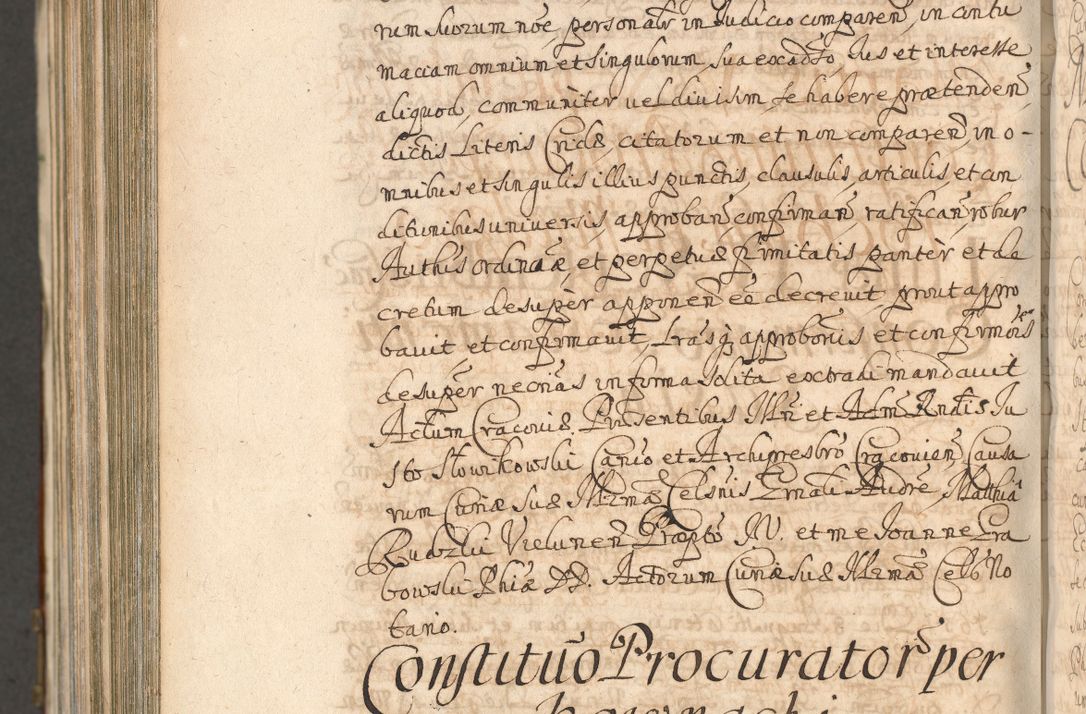 rum suorum noe, personalr in Judicio comparen, in contu
maciam omnium et singulorum, sua ex adsto, Jus et interesse
aliquod, communiter vel divisim se habere prætenden
dictis Literis Crid&, citatorum et non comparen, in o-
mnibus et singulis illius punctis, clausulis, articulis, et con
ditionibus universis, approban confirman, ratifican robur
Authis ordinaæ, et perpetu& firmitatis pariter et de
cretum desupèr apponen eē decrevit, prout appro
bavit et confirmavit, Lras q approboris et confirmois
desupèr necrias in forma solita extradi mandavit
Actum Cracovi&. Præsentibus Illri et Adm Rndis Ju
sto Słowikowski Canco et Archipresbro Cracovien, Causa
rum Curiæ Su& Illrmæ Celsnis Grnali Audre, Matthia
Rudzki Vielunen Præpto JV. et me Joanne Gra
bowski Phiæ DD. Actorum Curiæ Su& Illrmæ Cels No
tario.
Constituo Procurator per